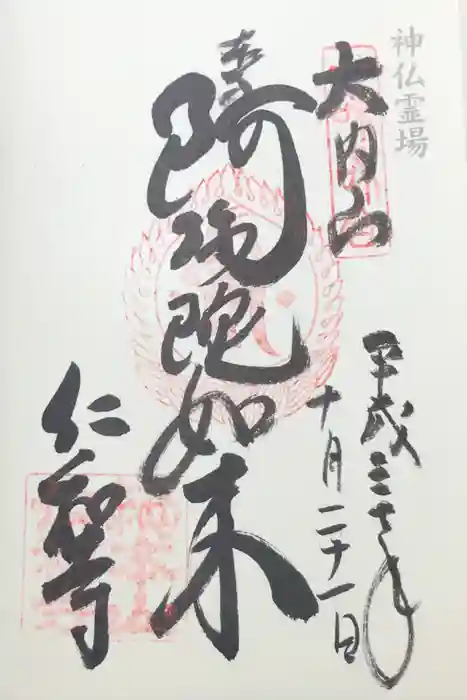 神仏霊場
大内山
平成三十年
十月二十一日
阿弥陀如来
仁和寺